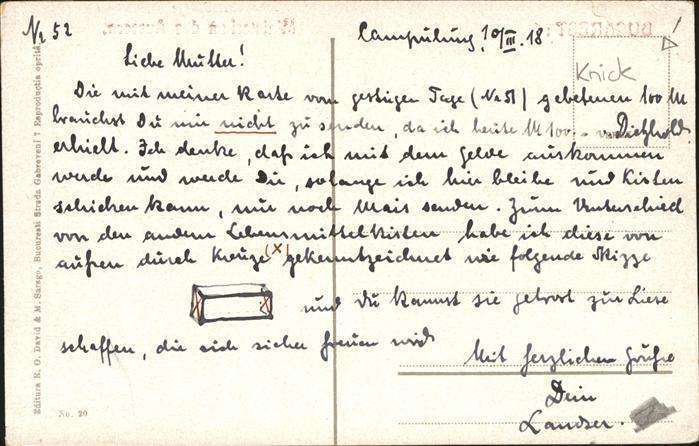 № 52
Campulung, 10/III. 18
Liebe Mutter!
Knick
Die mit meiner Karte vom gestrigen Tage (No 51) gebetenen 100 M
brauchst Du mir nicht zu senden, da ich heute M 100.- von Diephold
erhielt. Ich denke, daß ich mit dem Gelde auskommen
werde und werde Dir, solange ich hier bleibe und Kisten
schicken kann, nur noch Mais senden. Zum Unterschied
von den andern Lebensmittelkisten habe ich diese von
außen durch Kreuze (x) gekennzeichnet wie folgende Skizze
und Du kannst sie getrost zur Liese
schaffen, die sich sicher freuen wird
Mit herzlichen Grüßen
Dein
Landser.
Editura E. G. David & M. Saraga, Bucuresti Strada Gabroveni 7 Reproductia oprită
No. 20
BUCAREST